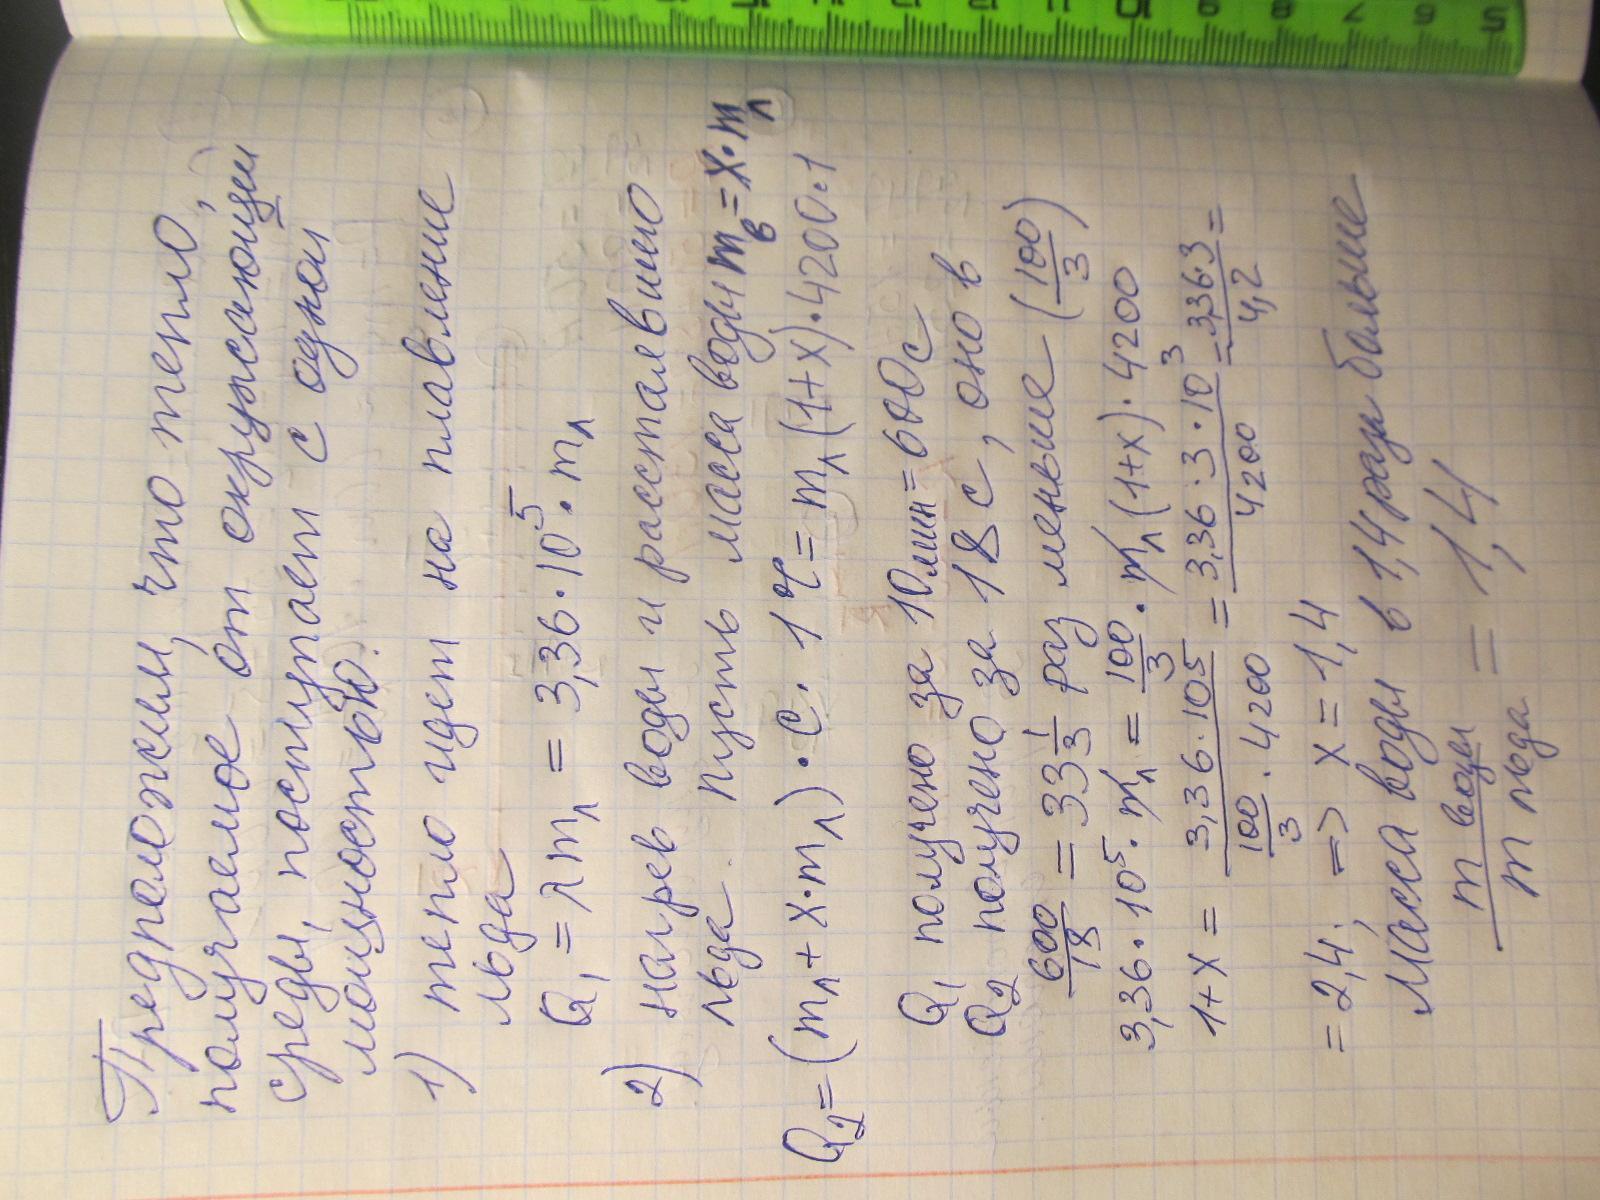 Предположим, что тепло,
получаемое от окружающей
среды, поступает с одной
мощностью.
1) тепло идет на плавление
льда
Q₁ = λ mл = 3,36·10⁵·mл
2) нагрев воды и расставвшего
льда. Пусть масса воды mв = x·mл
Q₂ = (mл + x·mл)·c·1℃ = mл(1+x)·4200·1
Q₁ получено за 10 мин = 600 с
Q₂ получено за 18 с, оно в
600/18 = 33 1/3 раз меньше (100/3)
3,36·10⁵·mл = 100/3·mл(1+x)·4200
1+x = 3,36·10⁵/(100/3·4200) = 3,36·3·10³/4200 = 3,36·3/4,2 =
= 2,4. => x = 1,4
Масса воды в 1,4 раза больше
m воды/m льда = 1,4
15 11 10 9 8 7 6 5